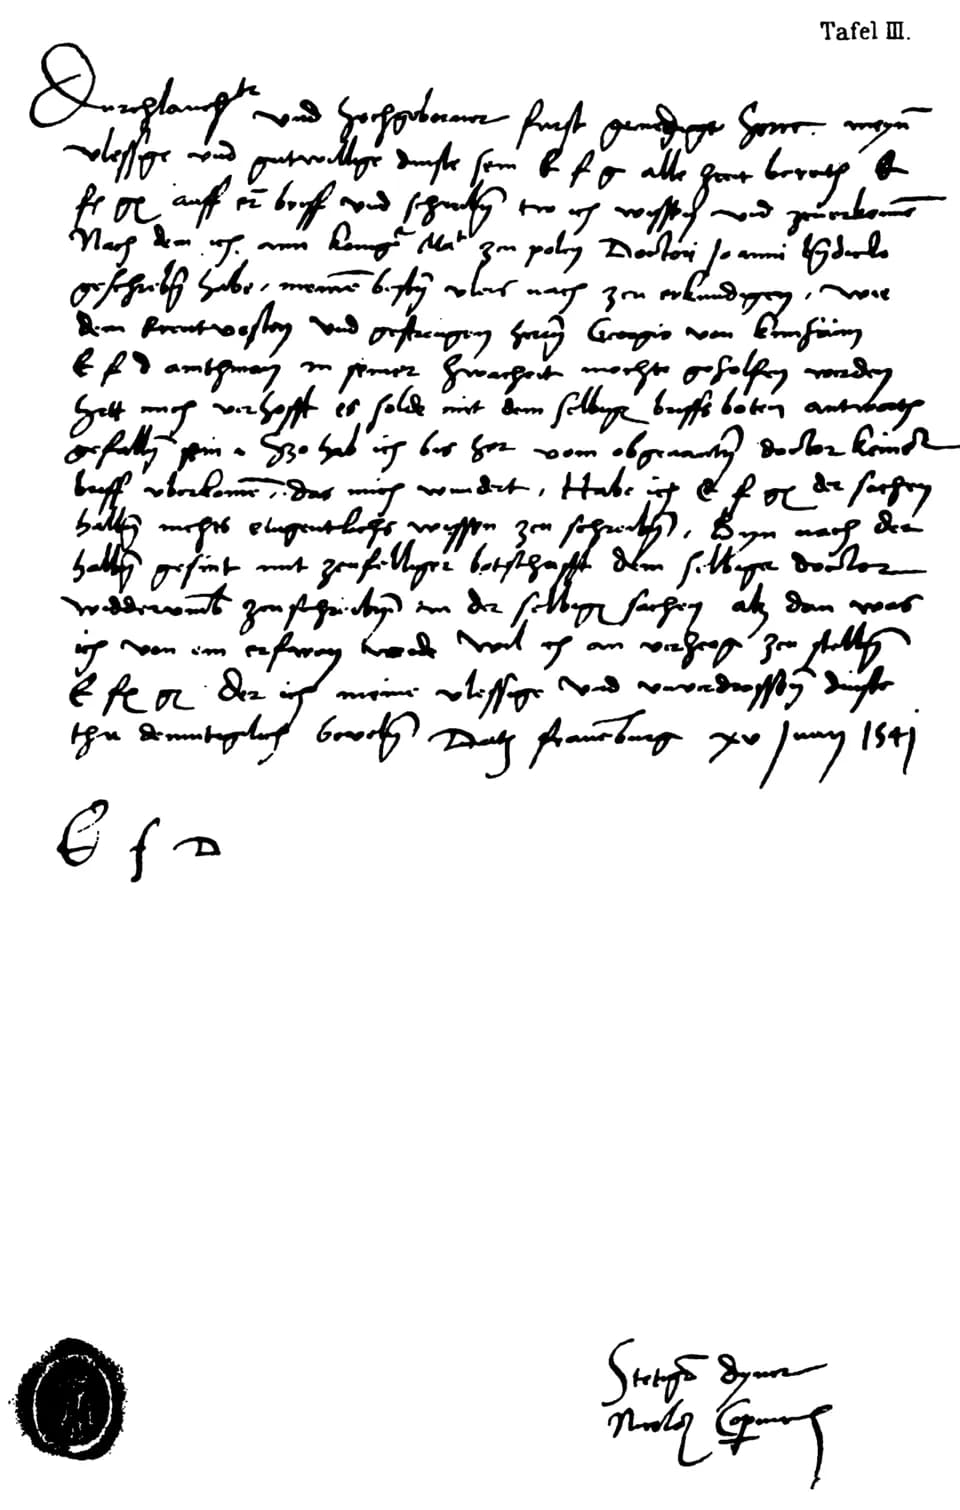 Tafel III.
Durchlauchster und hochgeborner furst genedigster herre. meyn
vlessige und gutwillige dinste sein E f g alle zeit bereith E
fe ge auff er briff und schreibē tw ich wyssen und zcuerkennē
Nach dem ich ann königr Mat zcu polen Doctori Joanni Benedicto
geschriben habe, meinē besten vleis nach zcu erkundigen, wie
dem Erentvesten und gestrengen herñ Georgio von Kunheim
E f d amthman in seiner swacheit mochte geholfen werden
hett mich verhofft es solde mit dem selbigen briffs boten antworth
gefallen sein. Szo hab ich bis her vom obgenanten doctor keinen
briff uberkomē, das mich wundert, Habe ich E f ge der sachen
halben nichts eingentlichs wyssen zcu schreiben, Byn nach der
halben gesint mit zcufelliger botschafft dem selbigen doctor
widderumb zcuschreiben in der selbigen sachen alz dan was
ich von im erfaren werde wil ich an verzcog zcu stellen
E fe ge Der ich meine vlessige und unverdrossen dinste
thu demutiglich bevelen Datz fraueburg xv Junij 1541
E f D
Stetigr dyner
Nicolaus Copernicus